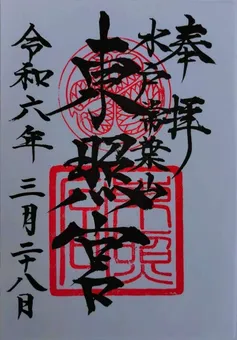 奉拝
水戸常葉山
東照宮
令和六年 三月二十八日